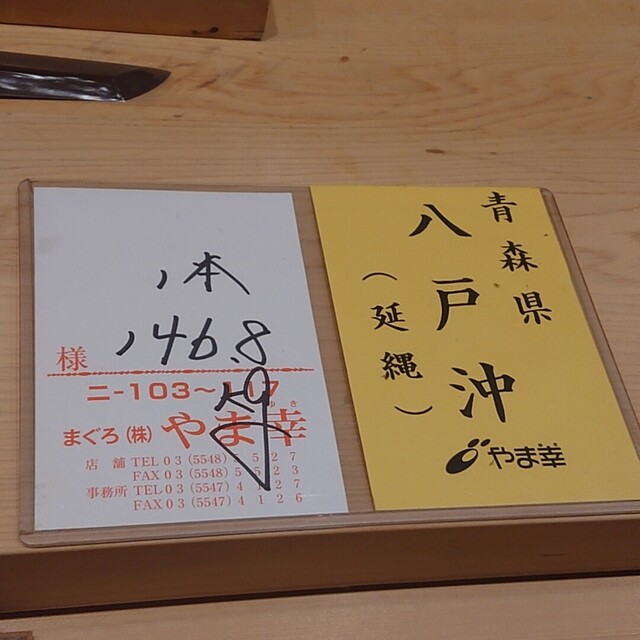 1本
146.8
kg
様
ニ-103~117
まぐろ(株)やま幸
ゆき
店舗 TEL 03(5548)5527
FAX 03(5548)5523
事務所 TEL 03(5547)4127
FAX 03(5547)4126
青森県
八戸沖
(延縄)
やま幸